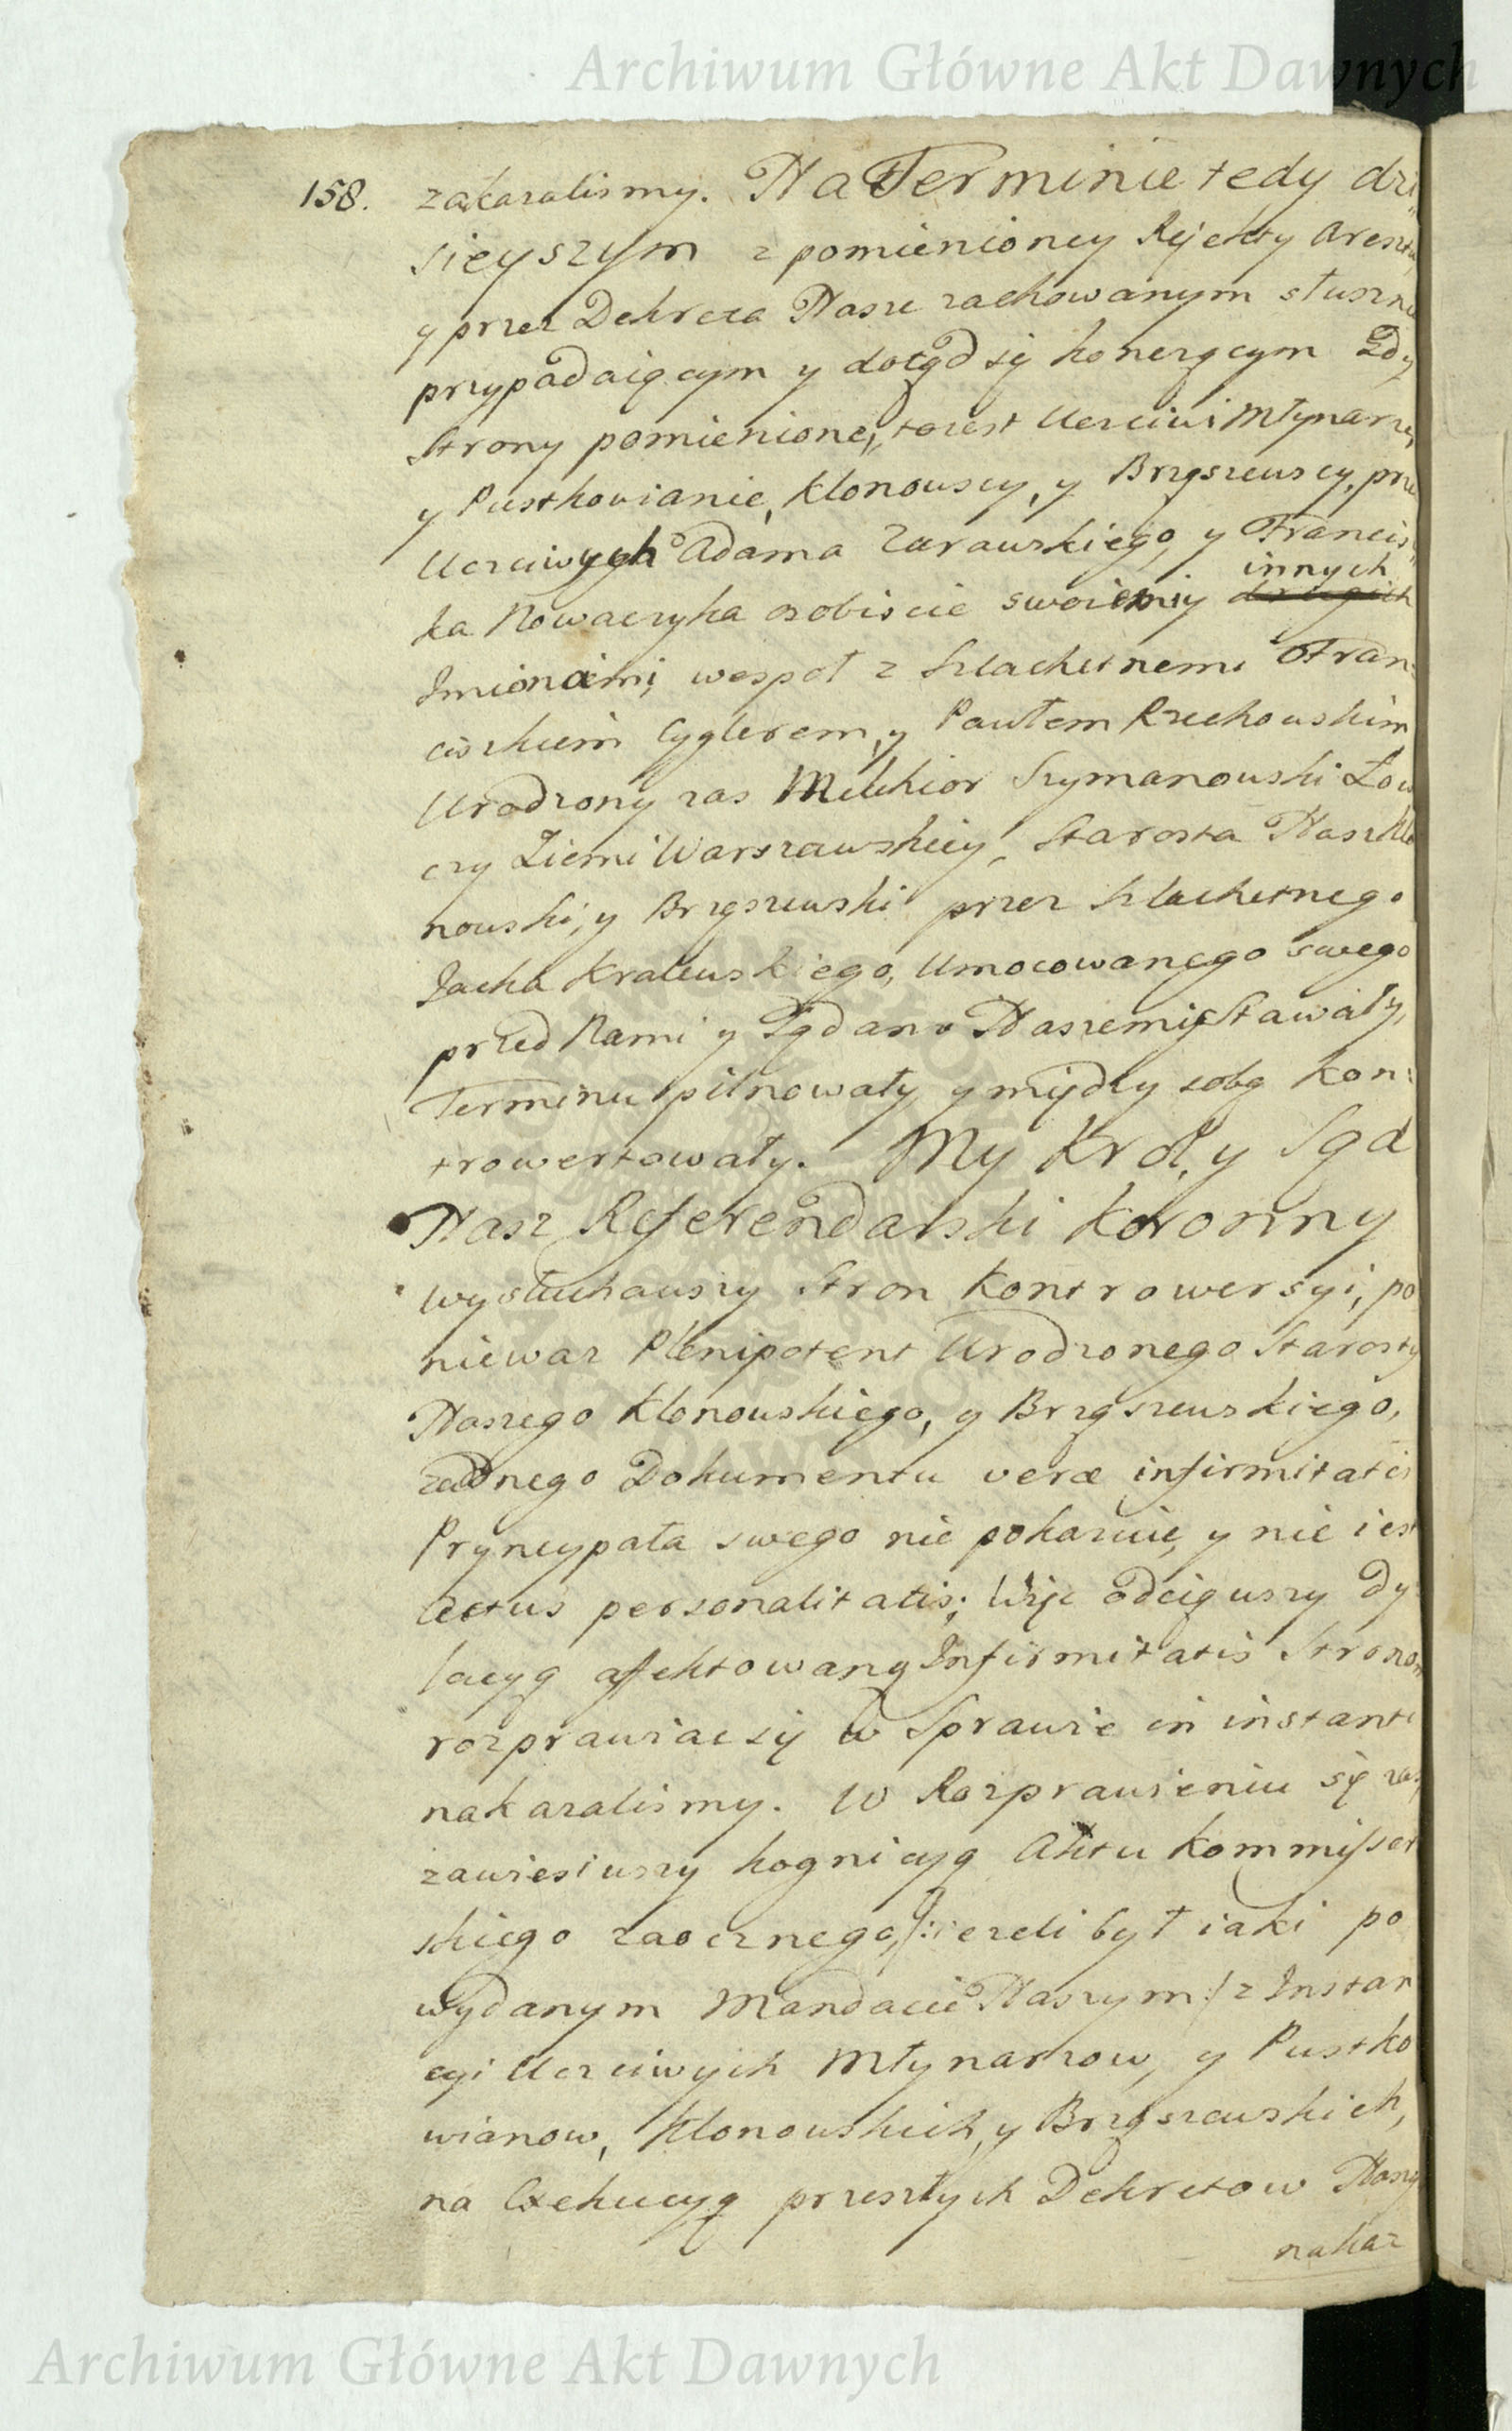 Archiwum Główne Akt Dawnych
158. zakazalismy. Na Terminie tedy dzi
sieyszym z pomienioney Rejekty Aresztu,
y przez Dekreta Nasze zachowanym słuszne
przypadaiącym y dotąd się konczącym Gdy
Strony pomienione, to iest Uczciwi Młynarze,
y Pustkowianie, Klonowscy, y Brząszewscy, prze
Uczciwych Adama Zurawskiego, y Francis
ka Nowaczyka osobiscie swoiemi y innych
Imionami, wespoł z Szlachetnemi Fran
ciszkiem Cyglerem, y Pawłem Rzechowskim,
Urodzony zas Melchior Szymanowski Łow
czy Ziemi Warszawskiey, Starosta Nasz Klo
nowski, y Brząszewski przez Szlachetnego
Jacka Kralewskiego, Umocowanego swego
przed Nami y Sądem Naszemi Stawały,
Terminu pilnowały y między sobą kon:
trowertowały. My Krol, y Sąd
Nasz Referendarski Koronny
wysłuchawszy Stron Kontrowersyi, po
niewaz Plenipotent Urodzonego Starosty
Naszego Klonowskiego, y Brząszewskiego,
zadnego Dokumentu veræ infirmitatis
Pryncypała swego nie pokazuie, y nie iest
actus personalitatis; Więc odciąwszy Dy
lacyą affektowaną Infirmitatis Stronom
rozprawiac się w Sprawie in instanti
nakazalismy. W Rozprawieniu się zas,
zawiesiwszy kognicyą Aktu Kommissar
skiego zaocznego, /:iezeli był iaki po
wydanym Mandacie Naszym:/ z Instan
cyi Uczciwych Młynarzow, y Pustko
wianow, Klonowskich, y Brząszewskich,
na Exekucyą przeszłych Dekretow Naszy
nakaz
Archiwum Główne Akt Dawnych